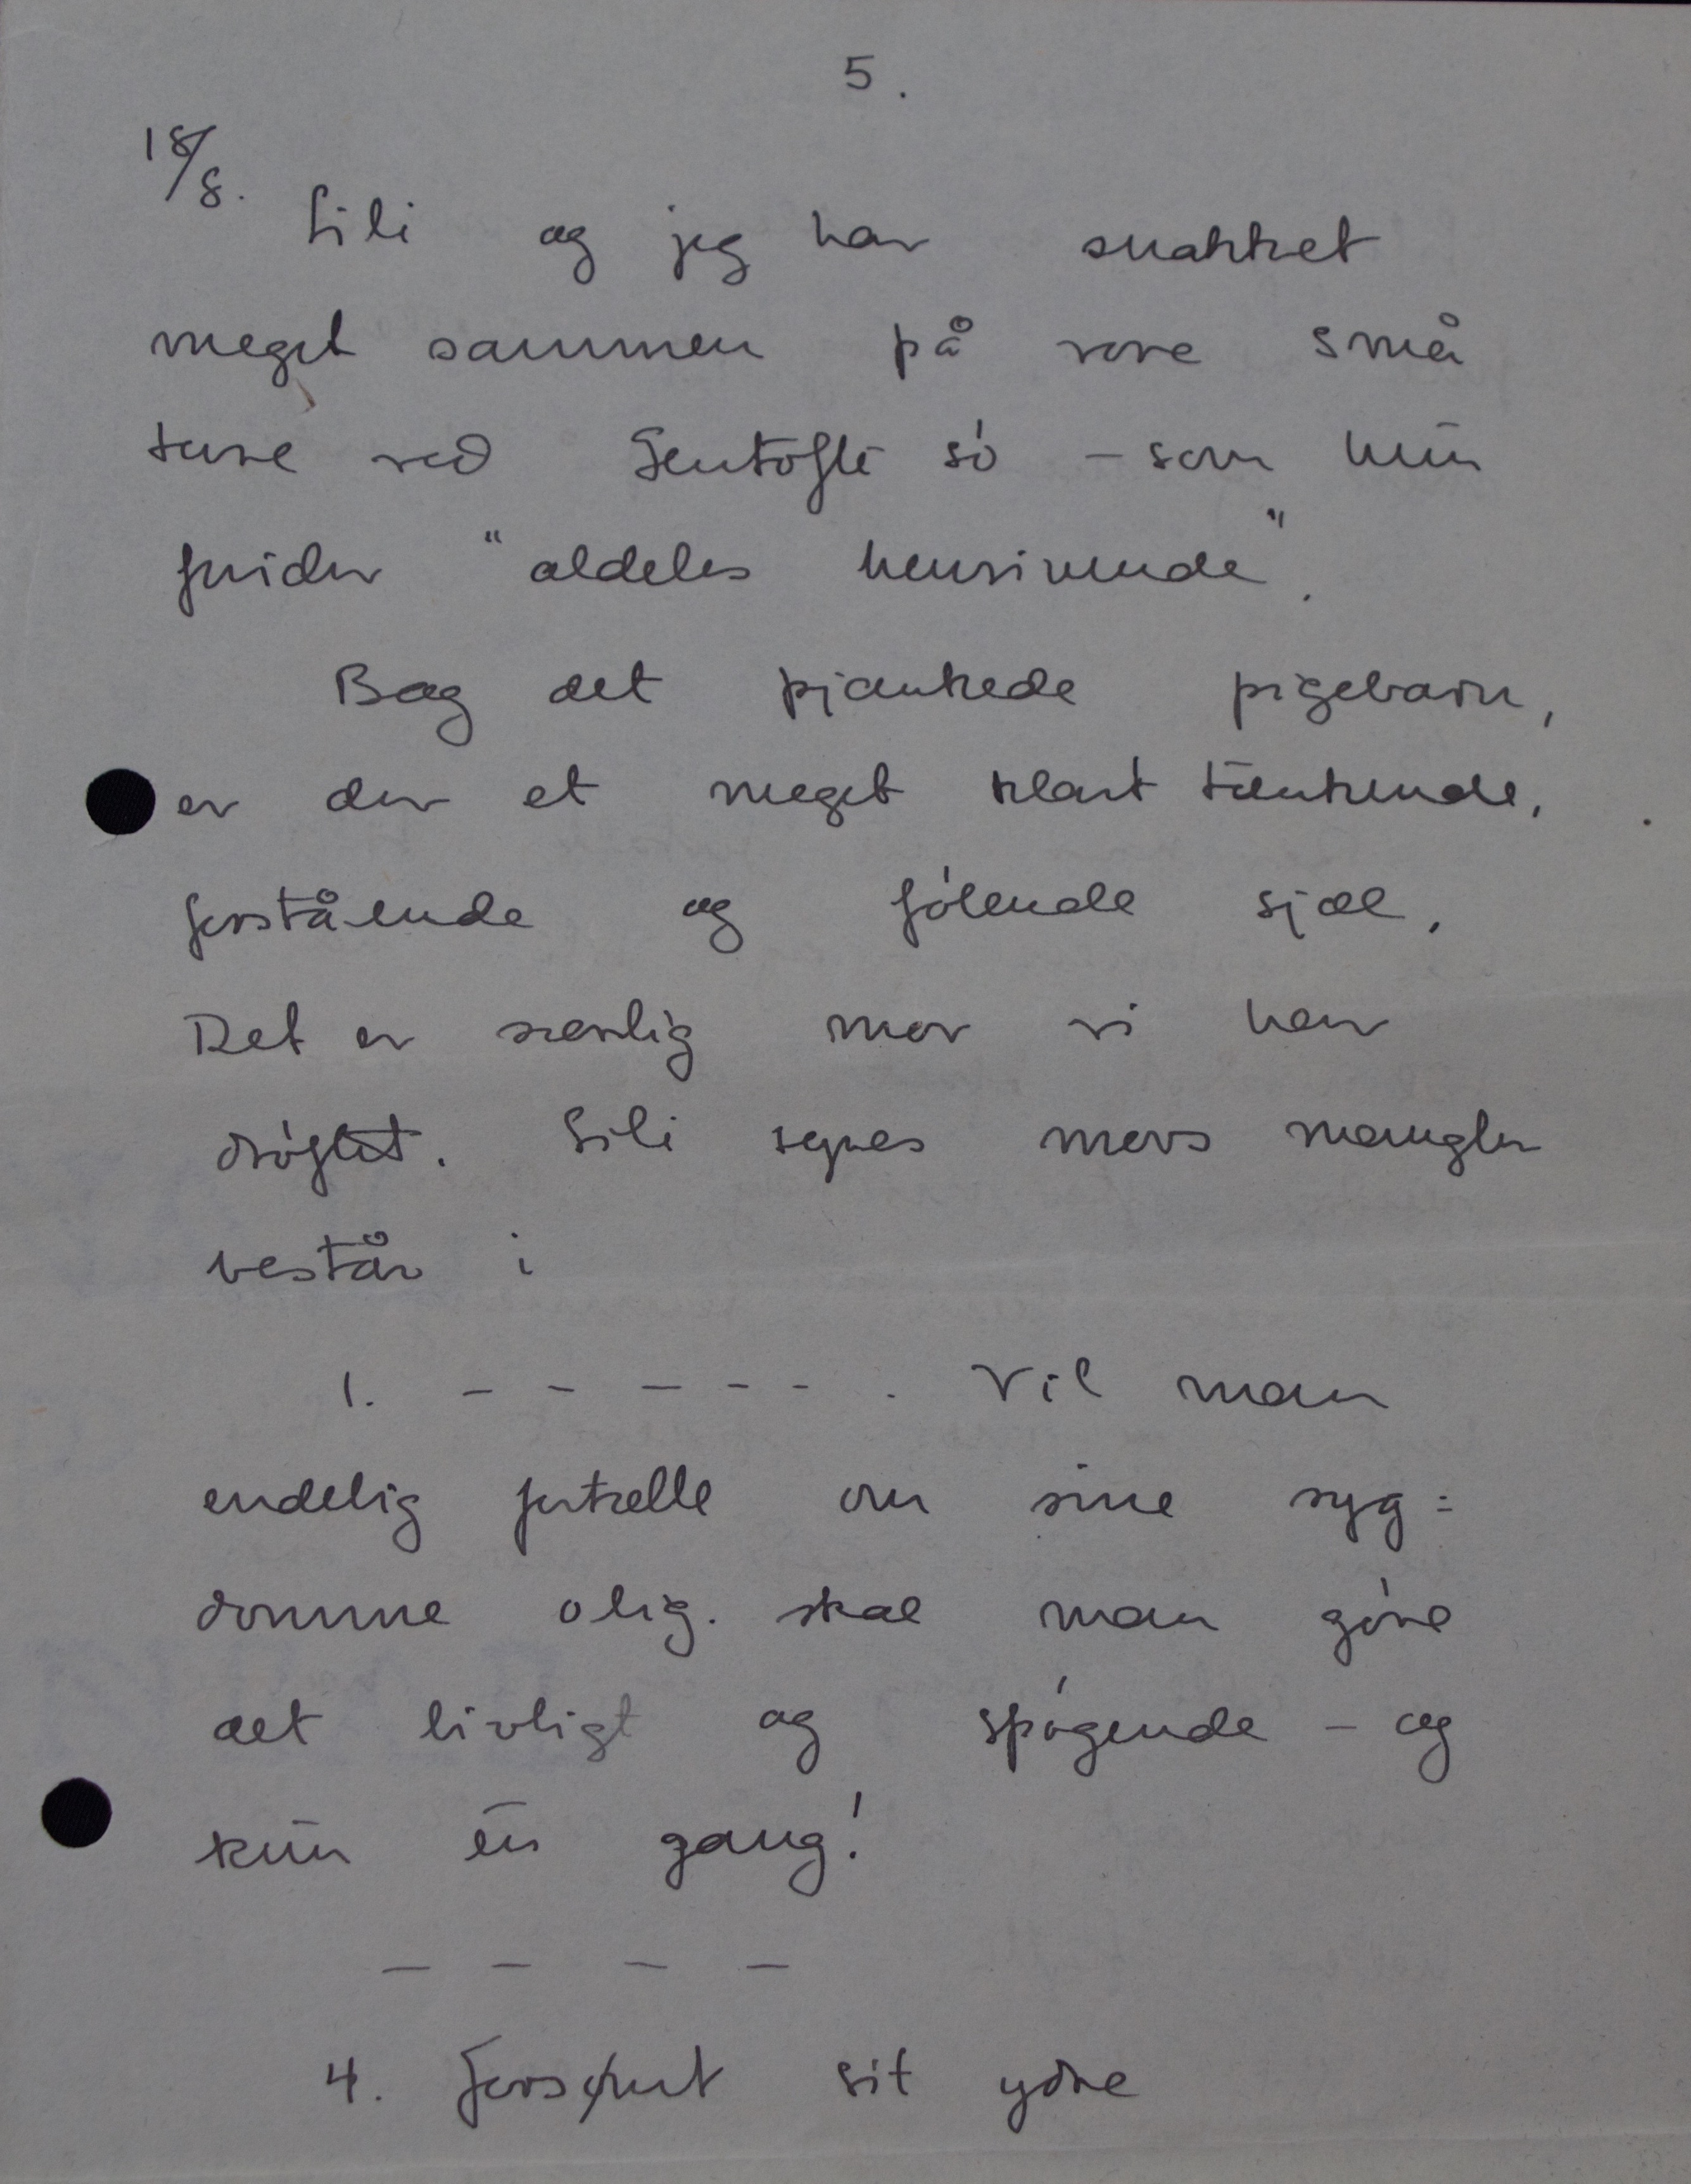 5.
18/8. Lili og jeg har snakket
meget sammen på vore små
ture ved Gentofte sø – som hun
finder "aldeles henrivende".
Bag det pjankede pigebarn,
er der et meget klart tænkende,
forstående og følende sjæl.
Det er særlig mor vi har
drøftet. Lili synes mors mangler
består i
1. – – – – – . Vil man
endelig fortælle om sine syg=
domme olig. skal man gøre
det livligt og spøgende – og
kun én gang!
– – – –
4. Forsømt sit ydre